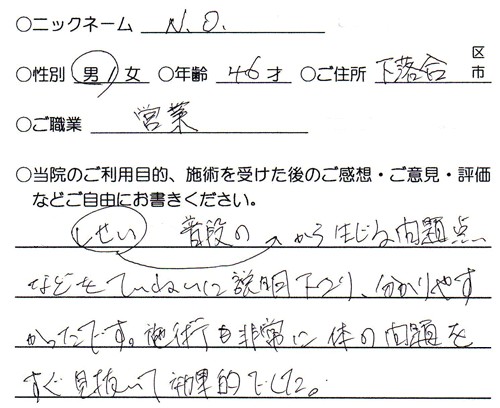 ○ニックネーム N.O.
○性別 男/女 ○年齢 46才 ○ご住所 下落合 区 市
○ご職業 営業
○当院のご利用目的、施術を受けた後のご感想・ご意見・評価
などご自由にお書きください。
しせい 普段の から生じる問題点
などをていねいに説明下さり、分かりやす
かったです。施術も非常に体の問題を
すぐ見抜いて効果的でした。